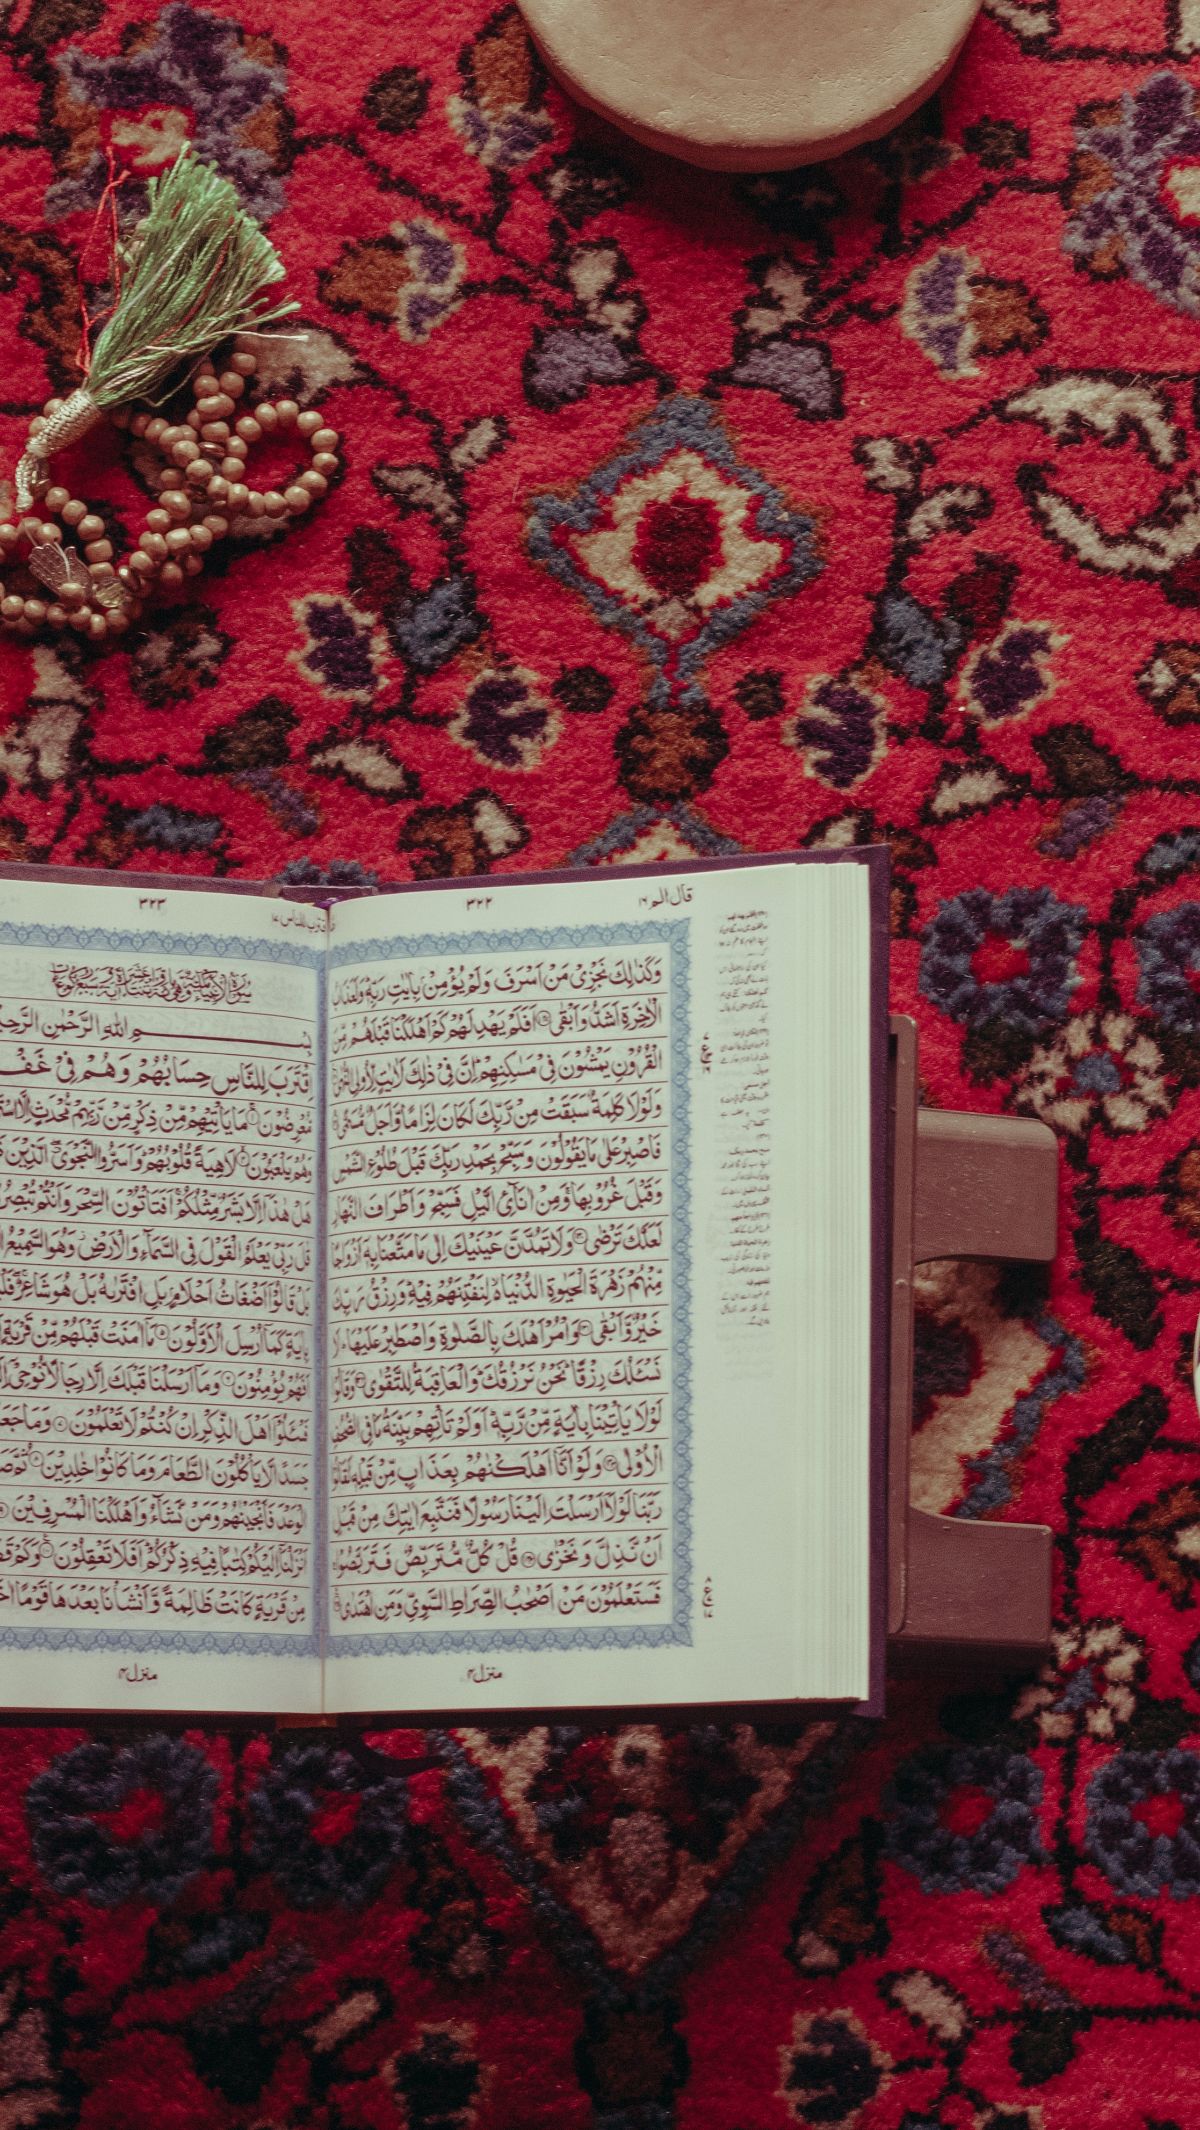 قال الم ١٦
٣٢٢
وَكَذٰلِكَ نَجْزِىْ مَنْ اَسْرَفَ وَلَمْ يُؤْمِنْۢ بِاٰيٰتِ رَبِّهٖ ؕ وَلَعَذَابُ
الْاٰخِرَةِ اَشَدُّ وَاَبْقٰى اَفَلَمْ يَهْدِ لَهُمْ كَمْ اَهْلَكْنَا قَبْلَهُمْ مِّنَ
الْقُرُوْنِ يَمْشُوْنَ فِىْ مَسٰكِنِهِمْ ؕ اِنَّ فِىْ ذٰلِكَ لَاٰيٰتٍ لِّاُولِى النُّهٰى
وَلَوْلَا كَلِمَةٌ سَبَقَتْ مِنْ رَّبِّكَ لَكَانَ لِزَامًا وَّاَجَلٌ مُّسَمًّى
فَاصْبِرْ عَلٰى مَا يَقُوْلُوْنَ وَسَبِّحْ بِحَمْدِ رَبِّكَ قَبْلَ طُلُوْعِ الشَّمْسِ
وَقَبْلَ غُرُوْبِهَا ۚ وَمِنْ اٰنَآئِ الَّيْلِ فَسَبِّحْ وَاَطْرَافَ النَّهَارِ
لَعَلَّكَ تَرْضٰى وَلَا تَمُدَّنَّ عَيْنَيْكَ اِلٰى مَا مَتَّعْنَا بِهٖۤ اَزْوَاجًا
مِّنْهُمْ زَهْرَةَ الْحَيٰوةِ الدُّنْيَا ۙ لِنَفْتِنَهُمْ فِيْهِ ؕ وَرِزْقُ رَبِّكَ
خَيْرٌ وَّاَبْقٰى وَاْمُرْ اَهْلَكَ بِالصَّلٰوةِ وَاصْطَبِرْ عَلَيْهَا ؕ لَا
نَسْئَلُكَ رِزْقًا ؕ نَحْنُ نَرْزُقُكَ ؕ وَالْعَاقِبَةُ لِلتَّقْوٰى وَقَالُوْا
لَوْلَا يَاْتِيْنَا بِاٰيَةٍ مِّنْ رَّبِّهٖ ؕ اَوَلَمْ تَاْتِهِمْ بَيِّنَةُ مَا فِى الصُّحُفِ
الْاُوْلٰى وَلَوْ اَنَّاۤ اَهْلَكْنٰهُمْ بِعَذَابٍ مِّنْ قَبْلِهٖ لَقَالُوْا
رَبَّنَا لَوْلَاۤ اَرْسَلْتَ اِلَيْنَا رَسُوْلًا فَنَتَّبِعَ اٰيٰتِكَ مِنْ قَبْلِ
اَنْ نَّذِلَّ وَنَخْزٰى قُلْ كُلٌّ مُّتَرَبِّصٌ فَتَرَبَّصُوْا ۚ
فَسَتَعْلَمُوْنَ مَنْ اَصْحٰبُ الصِّرَاطِ السَّوِيِّ وَمَنِ اهْتَدٰى
منزل ۴
اقترب للناس ١٧
٣٢٣
بِسْمِ اللهِ الرَّحْمٰنِ الرَّحِيْمِ
اِقْتَرَبَ لِلنَّاسِ حِسَابُهُمْ وَهُمْ فِىْ غَفْ
مُّعْرِضُوْنَ مَا يَاْتِيْهِمْ مِّنْ ذِكْرٍ مِّنْ رَّبِّهِمْ مُّحْدَثٍ اِلَّا اسْتَ
وَهُمْ يَلْعَبُوْنَ لَاهِيَةً قُلُوْبُهُمْ ؕ وَاَسَرُّوا النَّجْوَى ۖ الَّذِيْنَ
هَلْ هٰذَاۤ اِلَّا بَشَرٌ مِّثْلُكُمْ ۚ اَفَتَاْتُوْنَ السِّحْرَ وَاَنْتُمْ تُبْصِرُ
قٰلَ رَبِّىْ يَعْلَمُ الْقَوْلَ فِى السَّمَآءِ وَالْاَرْضِ ۚ وَهُوَ السَّمِيْعُ
بَلْ قَالُوْۤا اَضْغَاثُ اَحْلَامٍۭ بَلِ افْتَرٰىهُ بَلْ هُوَ شَاعِرٌ ۖ فَلْ
بِاٰيَةٍ كَمَاۤ اُرْسِلَ الْاَوَّلُوْنَ مَاۤ اٰمَنَتْ قَبْلَهُمْ مِّنْ قَرْيَةٍ
اَفَهُمْ يُؤْمِنُوْنَ وَمَاۤ اَرْسَلْنَا قَبْلَكَ اِلَّا رِجَالًا نُّوْحِىْۤ
فَسْئَلُوْۤا اَهْلَ الذِّكْرِ اِنْ كُنْتُمْ لَا تَعْلَمُوْنَ وَمَا جَعَ
جَسَدًا لَّا يَاْكُلُوْنَ الطَّعَامَ وَمَا كَانُوْا خٰلِدِيْنَ ثُمَّ صَ
الْوَعْدَ فَاَنْجَيْنٰهُمْ وَمَنْ نَّشَآءُ وَاَهْلَكْنَا الْمُسْرِفِيْنَ
اَنْزَلْنَاۤ اِلَيْكُمْ كِتٰبًا فِيْهِ ذِكْرُكُمْ ؕ اَفَلَا تَعْقِلُوْنَ وَكَمْ قَ
مِنْ قَرْيَةٍ كَانَتْ ظَالِمَةً وَّاَنْشَاْنَا بَعْدَهَا قَوْمًا
منزل ۴